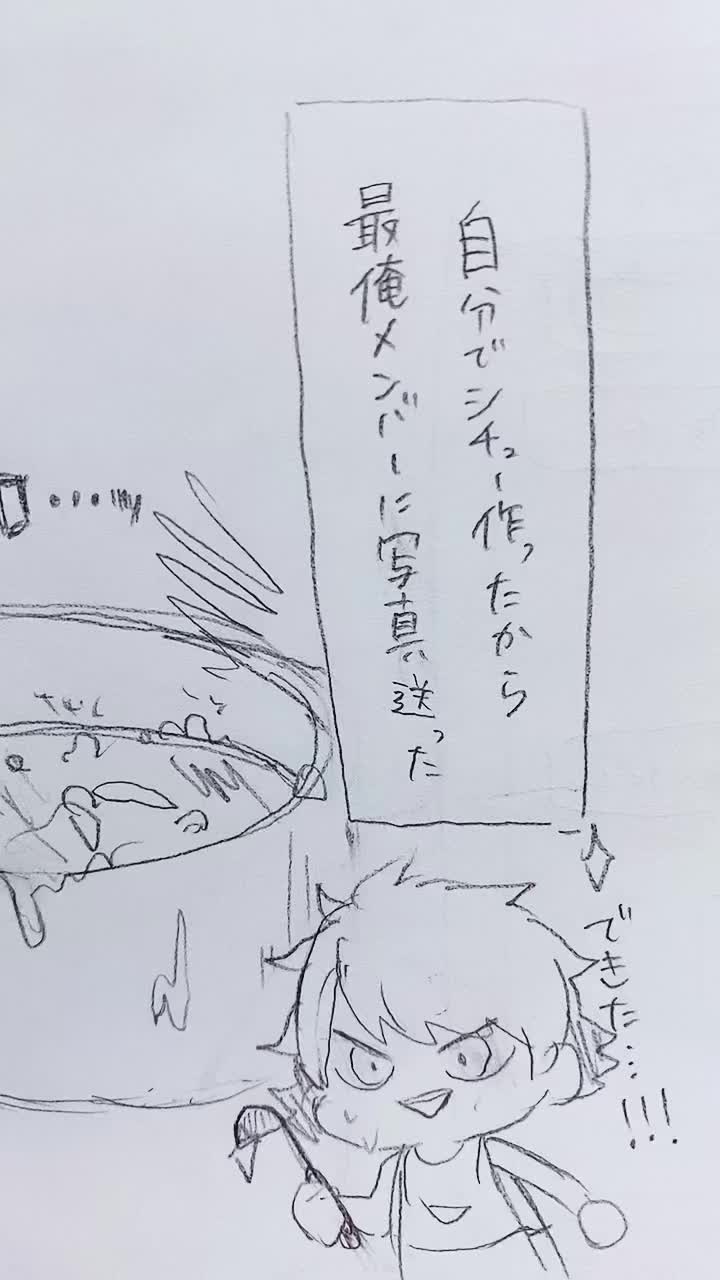 自分でシチュー作ったから
最俺メンバーに写真送った
できた…!!!